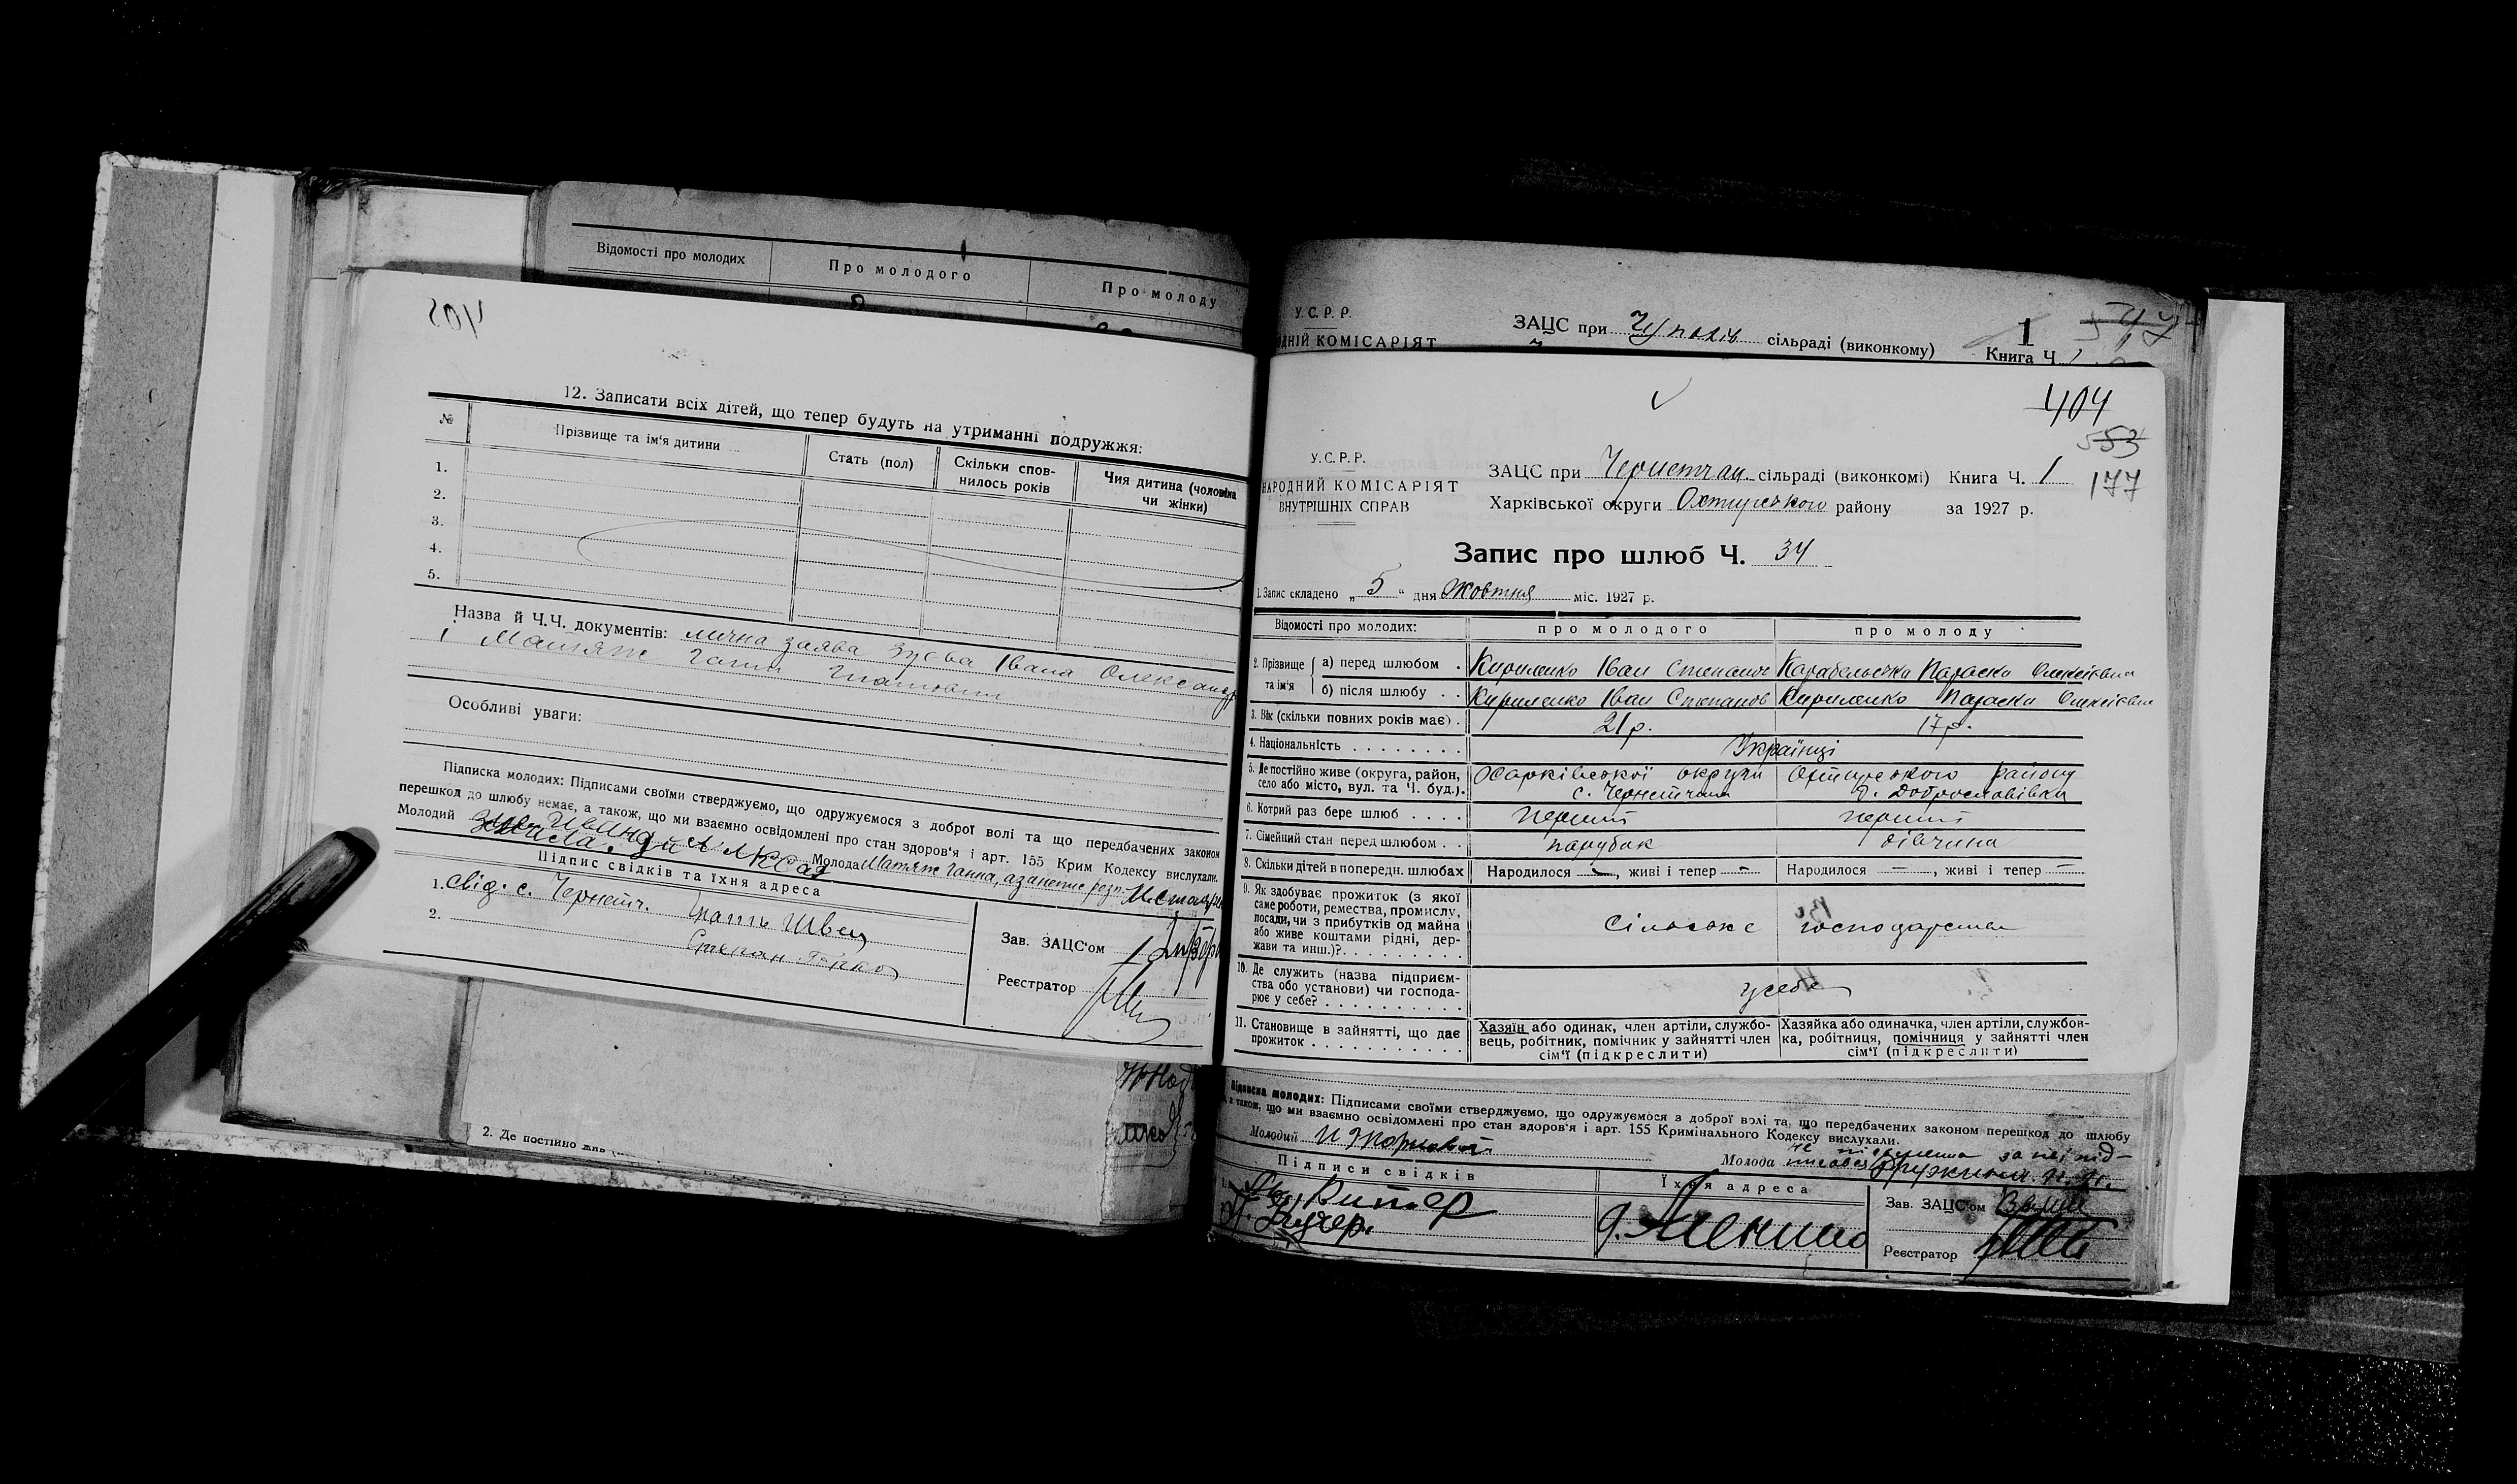 Відомості про молодих
Про молодого
Про молоду
405
12. Записати всіх дітей, що тепер будуть на утриманні подружжя:
№
Прізвище та ім'я дитини
Стать (пол)
Скільки спов-
нилось років
Чия дитина (чоловіка
чи жінки)
1.
2.
3.
4.
5.
Назва й Ч.Ч. документів: лична заява Зуєва Івана Олександр
і Матяш Ганни Гнатовни
Особливі уваги:
Підписка молодих: Підписами своїми стверджуємо, що одружуємося з доброї волі та що передбачених законом
перешкод до шлюбу немає, а також, що ми взаємно освідомлені про стан здоров'я і арт. 155 Крим Кодексу вислухали.
Молодий
Молода Матяш Ганна, а за неї
Підпис свідків та їхня адреса
1. свід. с. Чернетч. Гнать Швец
2. Степан
Зав. ЗАЦС'ом
Реєстратор
2. Де постійно жив
У.С.Р.Р.
ДНІЙ КОМІСАРІЯТ
ЗАЦС при Чупахів сільраді (виконкому)
1
Книга Ч. 1
404
553
177
У.С.Р.Р.
НАРОДНИЙ КОМІСАРІЯТ
ВНУТРІШНІХ СПРАВ
ЗАЦС при Чернетчан. сільраді (виконкомі) Книга Ч. 1
Харківської округи Охтирського району за 1927 р.
Запис про шлюб Ч. 34
1. Запис складено „5“ дня Жовтня міс. 1927 р.
Відомості про молодих:
про молодого
про молоду
2. Прізвище та ім'я
а) перед шлюбом
Кириленко Іван Степанов
Параска Олексіївна
б) після шлюбу
Кириленко Іван Степанов
Кириленко Параска Олексіївна
3. Вік (скільки повних років має)
21 р.
17 р.
4. Національність
Українці
5. Де постійно живе (округа, район,
село або місто, вул. та Ч. буд.)
Харківської округи Охтирського району
с. Чернетчина
Доброславівка
6. Котрий раз бере шлюб
перший
перший
7. Сімейний стан перед шлюбом
парубок
дівчина
8. Скільки дітей в попередн. шлюбах
Народилося —, живі і тепер —
Народилося —, живі і тепер —
9. Як здобуває прожиток (з якої
саме роботи, ремества, промислу,
посади, чи з прибутків од майна
або живе коштами рідні, дер-
жави та инш.)?
Сільське господарство
10. Де служить (назва підприєм-
ства обо установи) чи господа-
рює у себе?
у себе
11. Становище в зайнятті, що дає
прожиток
Хазяїн або одинак, член артіли, службо-
вець, робітник, помічник у зайнятті член
сім'ї (підкреслити)
Хазяйка або одиначка, член артіли, службов-
ка, робітниця, помічниця у зайнятті член
сім'ї (підкреслити)
Підписка молодих: Підписами своїми стверджуємо, що одружуємося з доброї волі та що передбачених законом перешкод до шлюбу
а також, що ми взаємно освідомлені про стан здоров'я і арт. 155 Кримінального Кодексу вислухали.
Молодий
Молода
Підписи свідків
Їхня адреса
Зав. ЗАЦС'ом
Реєстратор